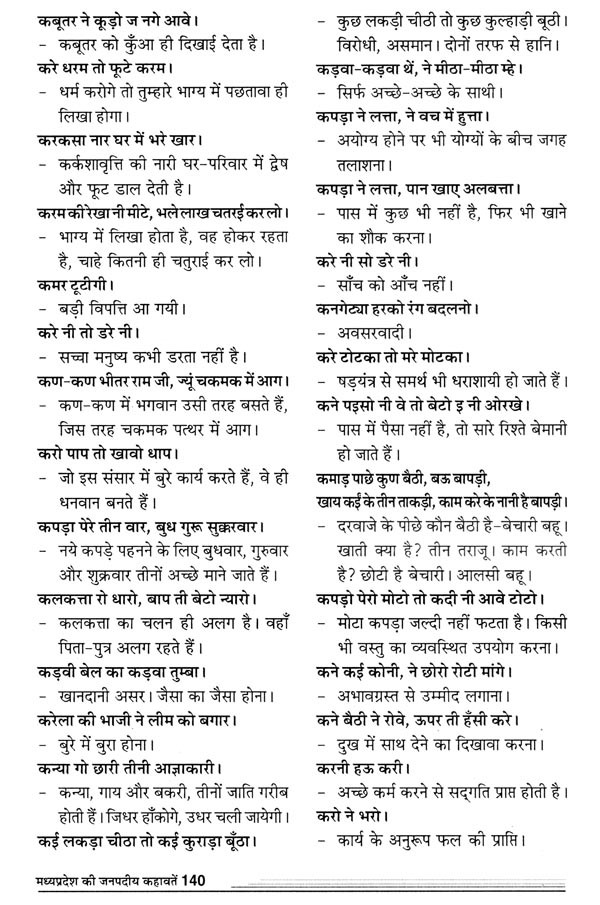 कबूतर ने कूड़ो ज नगे आवे।
– कबूतर को कुँआ ही दिखाई देता है।
करे धरम तो फूटे करम।
– धर्म करोगे तो तुम्हारे भाग्य में पछतावा ही
लिखा होगा।
करकसा नार घर में भरे खार।
– कर्कशावृत्ति की नारी घर-परिवार में द्वेष
और फूट डाल देती है।
करम की रेखा नी मीटे, भले लाख चतरई कर लो।
– भाग्य में लिखा होता है, वह होकर रहता
है, चाहे कितनी ही चतुराई कर लो।
कमर टूटीगी।
– बड़ी विपत्ति आ गयी।
करे नी तो डरे नी।
– सच्चा मनुष्य कभी डरता नहीं है।
कण-कण भीतर राम जी, ज्यूं चकमक में आग।
– कण-कण में भगवान उसी तरह बसते हैं,
जिस तरह चकमक पत्थर में आग।
करो पाप तो खावो धाप।
– जो इस संसार में बुरे कार्य करते हैं, वे ही
धनवान बनते हैं।
कपड़ा पेरे तीन वार, बुध गुरू सुक्करवार।
– नये कपड़े पहनने के लिए बुधवार, गुरुवार
और शुक्रवार तीनों अच्छे माने जाते हैं।
कलकत्ता रो धारो, बाप ती बेटो न्यारो।
– कलकत्ता का चलन ही अलग है। वहाँ
पिता-पुत्र अलग रहते हैं।
कड़वी बेल का कड़वा तुम्बा।
– खानदानी असर। जैसा का जैसा होना।
करेला की भाजी ने लीम को बगार।
– बुरे में बुरा होना।
कन्या गो छारी तीनी आज्ञाकारी।
– कन्या, गाय और बकरी, तीनों जाति गरीब
होती हैं। जिधर हाँकोगे, उधर चली जायेगी।
कई लकड़ा चीठा तो कई कुराड़ा बूँठा।
– कुछ लकड़ी चीठी तो कुछ कुल्हाड़ी बूठी।
विरोधी, असमान। दोनों तरफ से हानि।
कड़वा-कड़वा थें, ने मीठा-मीठा म्हे।
– सिर्फ अच्छे-अच्छे के साथी।
कपड़ा ने लत्ता, ने वच में हुत्ता।
– अयोग्य होने पर भी योग्यों के बीच जगह
तलाशना।
कपड़ा ने लत्ता, पान खाए अलबत्ता।
– पास में कुछ भी नहीं है, फिर भी खाने
का शौक करना।
करे नी सो डरे नी।
– साँच को आँच नहीं।
कनगेट्या हरको रंग बदलनो।
– अवसरवादी।
करे टोटका तो मरे मोटका।
– षड़यंत्र से समर्थ भी धराशायी हो जाते हैं।
कने पइसो नी वे तो बेटो इ नी ओरखे।
– पास में पैसा नहीं है, तो सारे रिश्ते बेमानी
हो जाते हैं।
कमाड़ पाछे कुण बैठी, बऊ बापड़ी,
खाय कईं के तीन ताकड़ी, काम करे के नानी है बापड़ी।
– दरवाजे के पीछे कौन बैठी है-बेचारी बहू।
खाती क्या है? तीन तराजू। काम करती
है? छोटी है बेचारी। आलसी बहू।
कपड़ो पेरो मोटो तो कदी नी आवे टोटो।
– मोटा कपड़ा जल्दी नहीं फटता है। किसी
भी वस्तु का व्यवस्थित उपयोग करना।
कने कई कोनी, ने छोरो रोटी मांगे।
– अभावग्रस्त से उम्मीद लगाना।
कने बैठी ने रोवे, ऊपर ती हँसी करे।
– दुख में साथ देने का दिखावा करना।
करनी हऊ करी।
– अच्छे कर्म करने से सद्गति प्राप्त होती है।
करो ने भरो।
– कार्य के अनुरूप फल की प्राप्ति।
मध्यप्रदेश की जनपदीय कहावतें 140